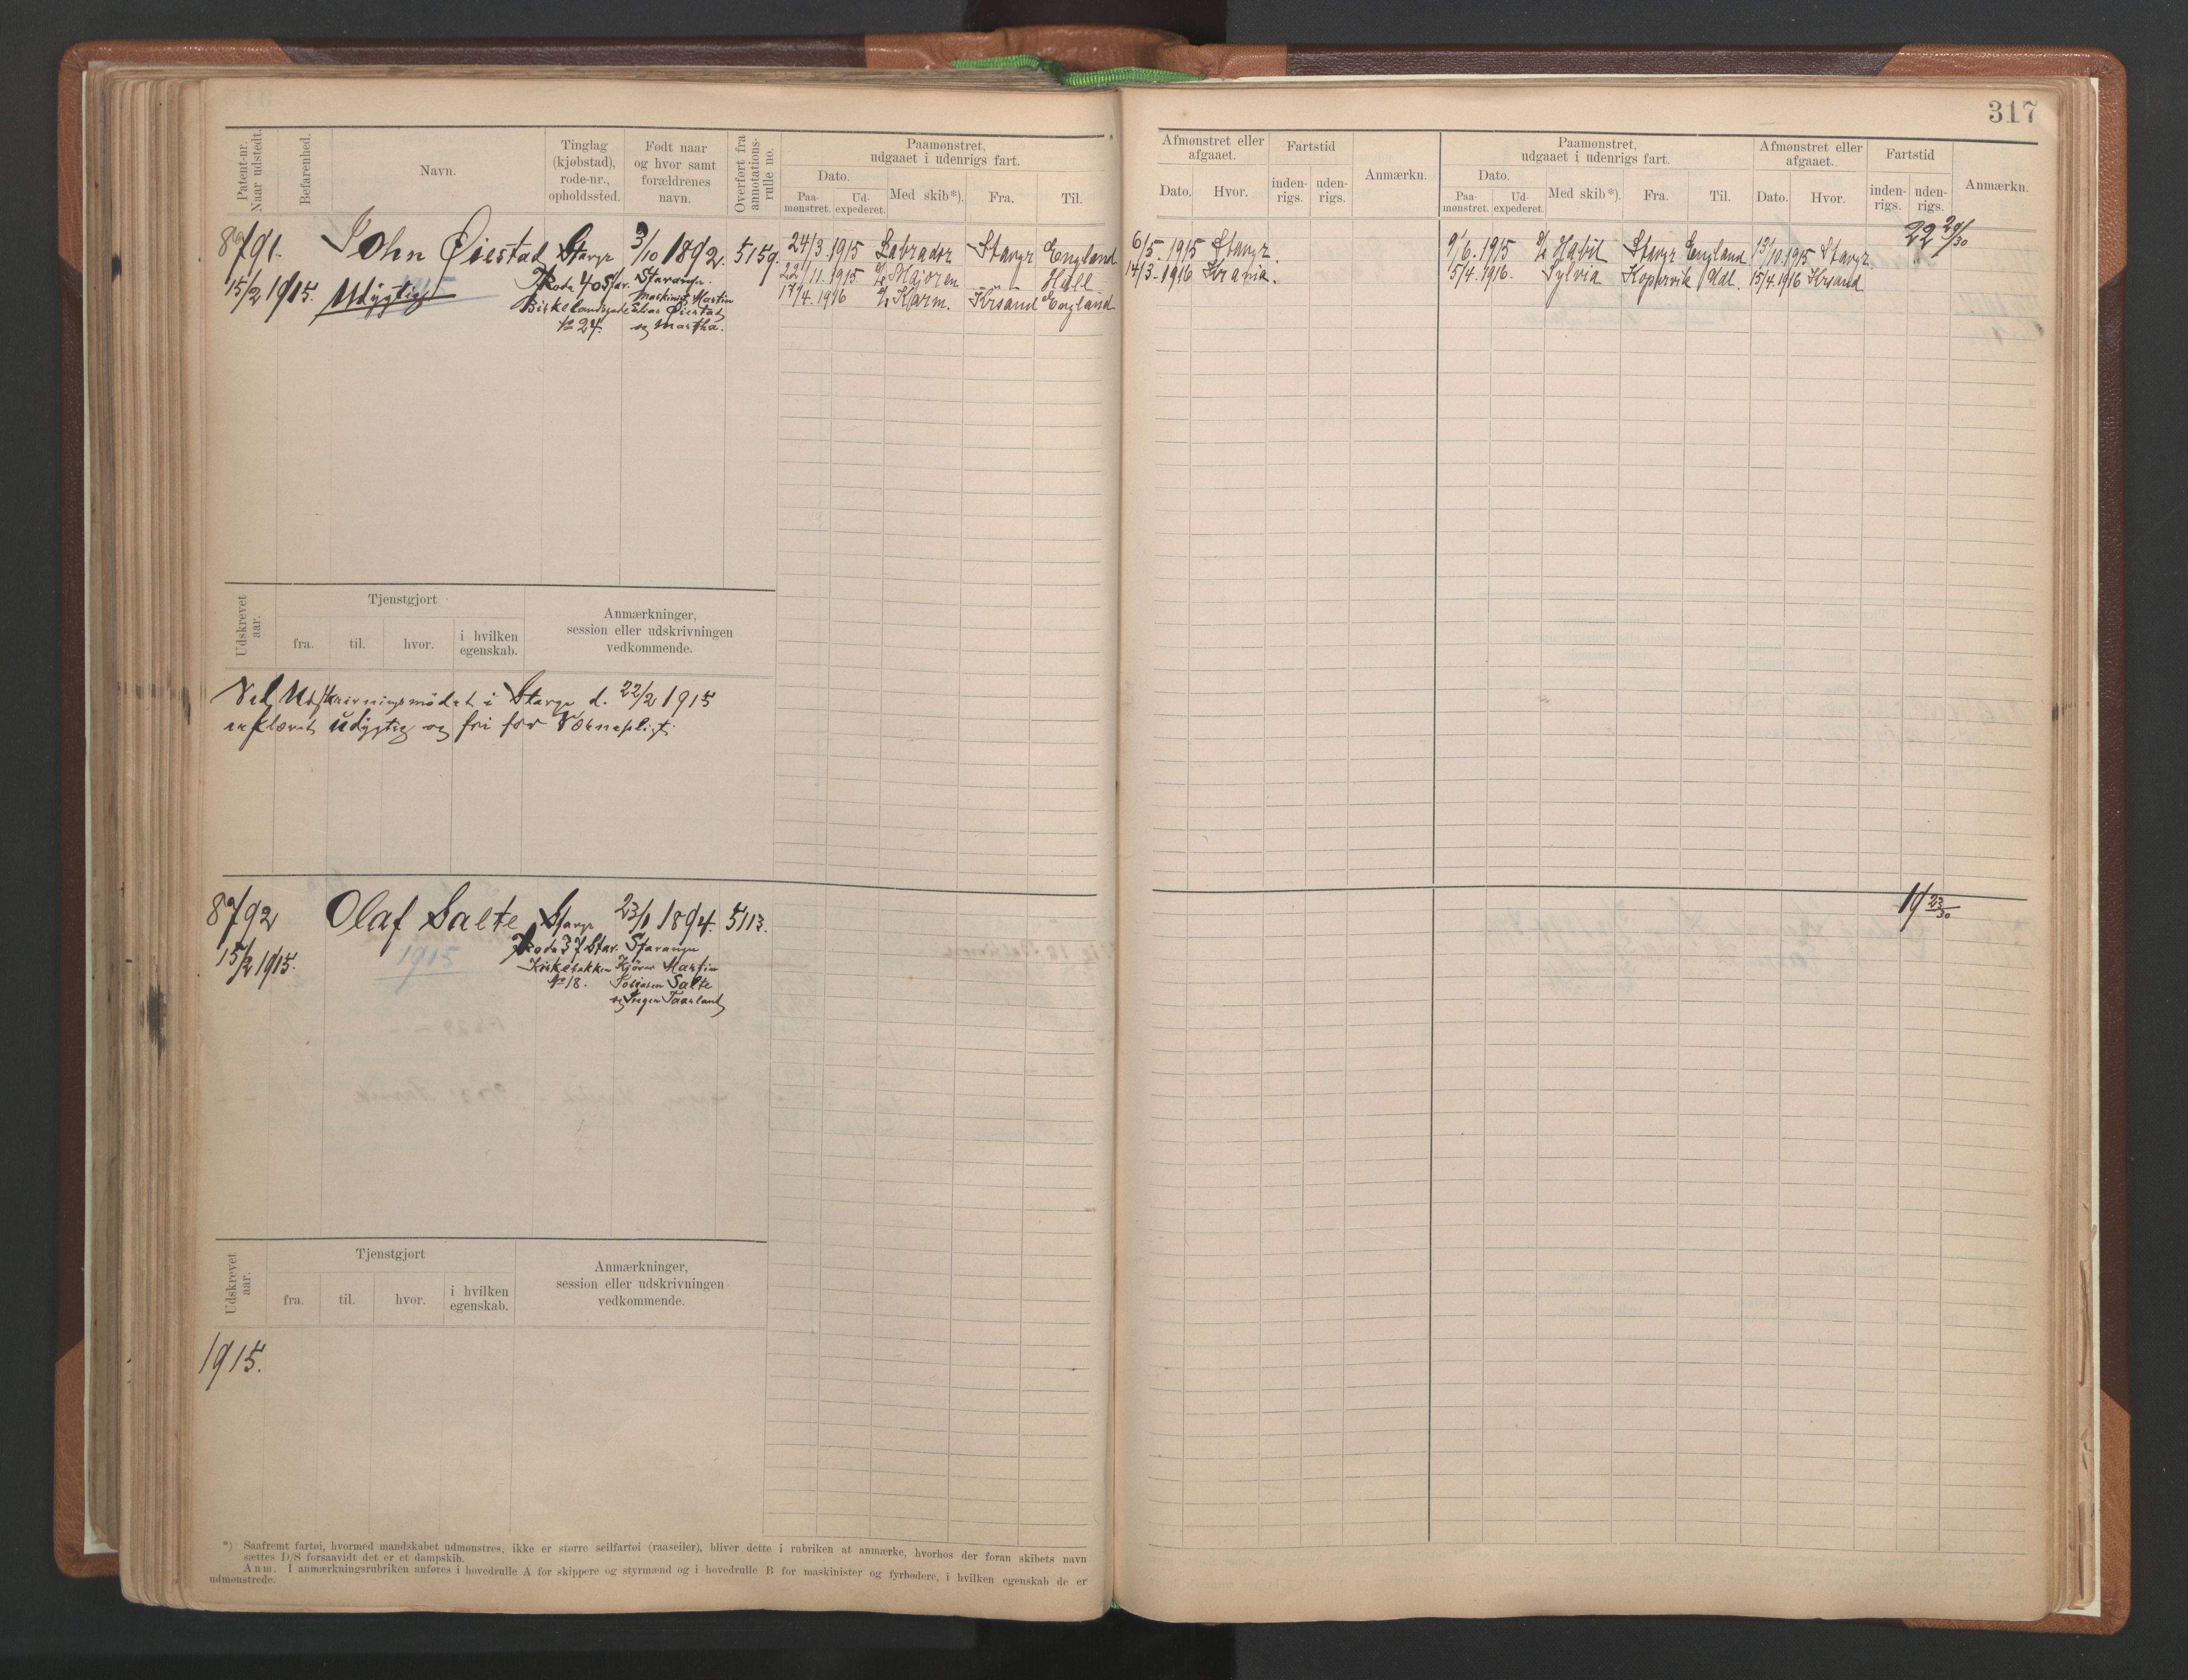 317
Patent-nr. Naar udstedt.
Befarenhed.
Navn.
Tinglag (kjøbstad), rode-nr., opholdssted.
Født naar og hvor samt forældrenes navn.
Overført fra annotations-rulle no.
Paamønstret, udgaaet i udenrigs fart.
Dato.
Paa-mønstret.
Ud-expederet.
Med skib*).
Fra.
Til.
Afmønstret eller afgaaet.
Dato.
Hvor.
Fartstid
inden-rigs.
uden-rigs.
Anmærkn.
Paamønstret, udgaaet i udenrigs fart.
Dato.
Paa-mønstret.
Ud-expederet.
Med skib*).
Fra.
Til.
Afmønstret eller afgaaet.
Dato.
Hvor.
Fartstid
inden-rigs.
uden-rigs.
Anmærkn.
8791. John Øiestad Stavgr 3/10 1892. 5159.
15/2 1915. Udygtig
Rode 40 Stav. Stavanger
Birkelandsgade
No 24.
Maskinist Martin
Elias Øiestad
og Martha.
24/3.1915 Labrador Stavgr England 6/5.1915 Stavgr. 9/6.1915 Havil Stavgr England 13/10.1915 Stavgr 22 29/30
22/11.1915 Majoren " Hull 14/3.1916 Krania. 5/4.1916. Sylvia Kopervik Udl. 15/4.1916 Krsand
17/4.1916 Karm. Krsand England
Udskrevet aar.
Tjenstgjort
fra.
til.
hvor.
i hvilken egenskab.
Anmærkninger, session eller udskrivningen vedkommende.
Ved Udskrivningsmødet i Stavgr d. 22/2 1915
erklæret udygtig og fri for Værnepligt.
8792 Olaf Salte Stavgr 23/1 1894. 5113.
15/2 1915. 1915
Rode 37 Stav. Stavanger
Kirkebakken
No 18.
Kjører Martin
Tobiasen Salte
og Inger Taarland
19 23/30
Udskrevet aar.
Tjenstgjort
fra.
til.
hvor.
i hvilken egenskab.
Anmærkninger, session eller udskrivningen vedkommende.
1915.
*) Saafremt fartøi, hvormed mandskabet udmønstres, ikke er større seilfartøi (raaseiler), bliver dette i rubriken at anmærke, hvorhos der foran skibets navn
sættes D/S forsaavidt det er et dampskib.
Anm. I anmærkningsrubriken anføres i hovedrulle A for skippere og styrmænd og i hovedrulle B for maskinister og fyrbødere, i hvilken egenskab de er
udmønstrede.